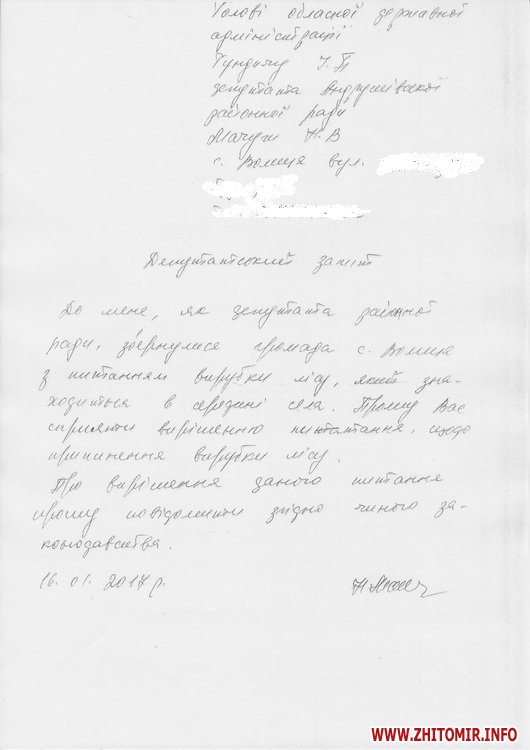 Голові обласної державної
адміністрації
Гундичу І.П
депутата Андрушівської
районної ради
Мачули Н.В
с. Волиця вул.
Депутатський запит
До мене, як депутата районної
ради, звернулися громада с. Волиця
з питанням вирубки лісу, який зна-
ходиться в середині села. Прошу Вас
сприяти вирішенню питатання, щодо
припинення вирубки лісу.
Про вирішення даного питання
прошу повідомити згідно чинного за-
конодавства.
16. 01. 2017 р.
WWW.ZHITOMIR.INFO